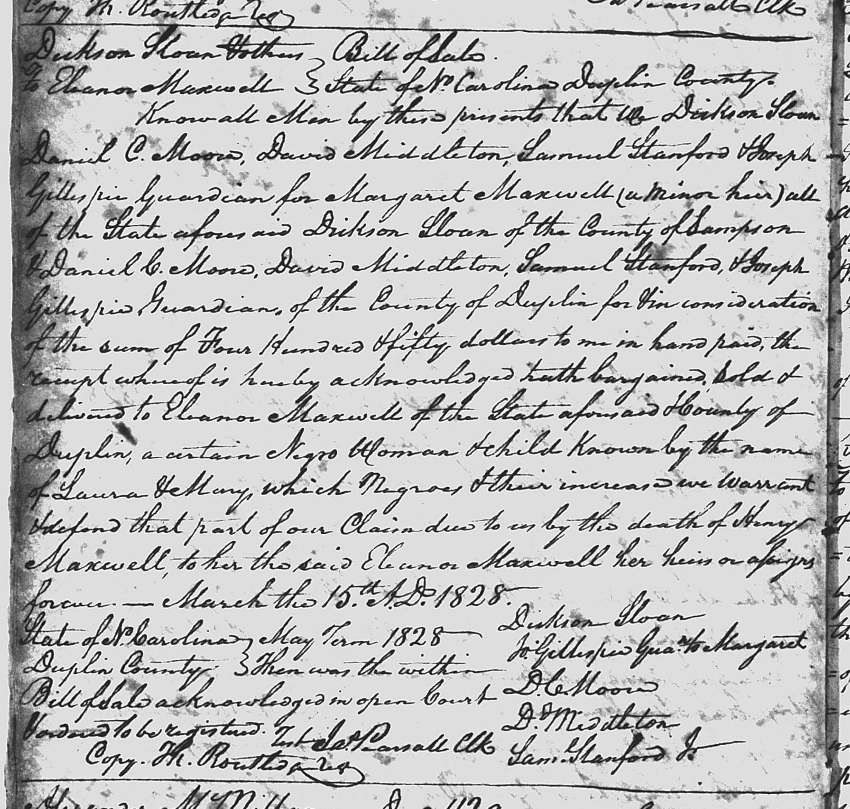 Copy Th. Routledge Reg Jas Pearsall Clk
Dickson Sloan & others } Bill of Sale.
To Eleanor Maxwell } State of No Carolina Duplin County.
Know all Men by these presents that We Dickson Sloan
Daniel C. Moore, David Middleton, Samuel Stanford & Joseph
Gillespie Guardian for Margaret Maxwell (a minor heir) all
of the State aforesaid Dickson Sloan of the County of Sampson
& Daniel C. Moore, David Middleton, Samuel Stanford, & Joseph
Gillespie Guardian, of the County of Duplin for & in consideration
of the sum of Four Hundred & fifty dollars to me in hand paid, the
receipt whereof is hereby acknowledged hath bargained, Sold &
delivered to Eleanor Maxwell of the State aforesaid & County of
Duplin, a certain Negro Woman & child Known by the name
of Laura & Mary, which Negroes & their increase we Warrant
& defend that part of our Claim due to us by the death of Henry
Maxwell, to her the said Eleanor Maxwell her heirs or assigns
forever — March the 15.th A.D. 1828.
Dickson Sloan
State of No Carolina } May Term 1828
Jo Gillespie Gua. to Margaret
Duplin County } Then was the within
Bill of Sale acknowledged in open Court
D C Moore
& ordered to be registered. Test Jas Pearsall Clk
D. Middleton
Copy. Th. Routledge Reg
Saml. Stanford Jr